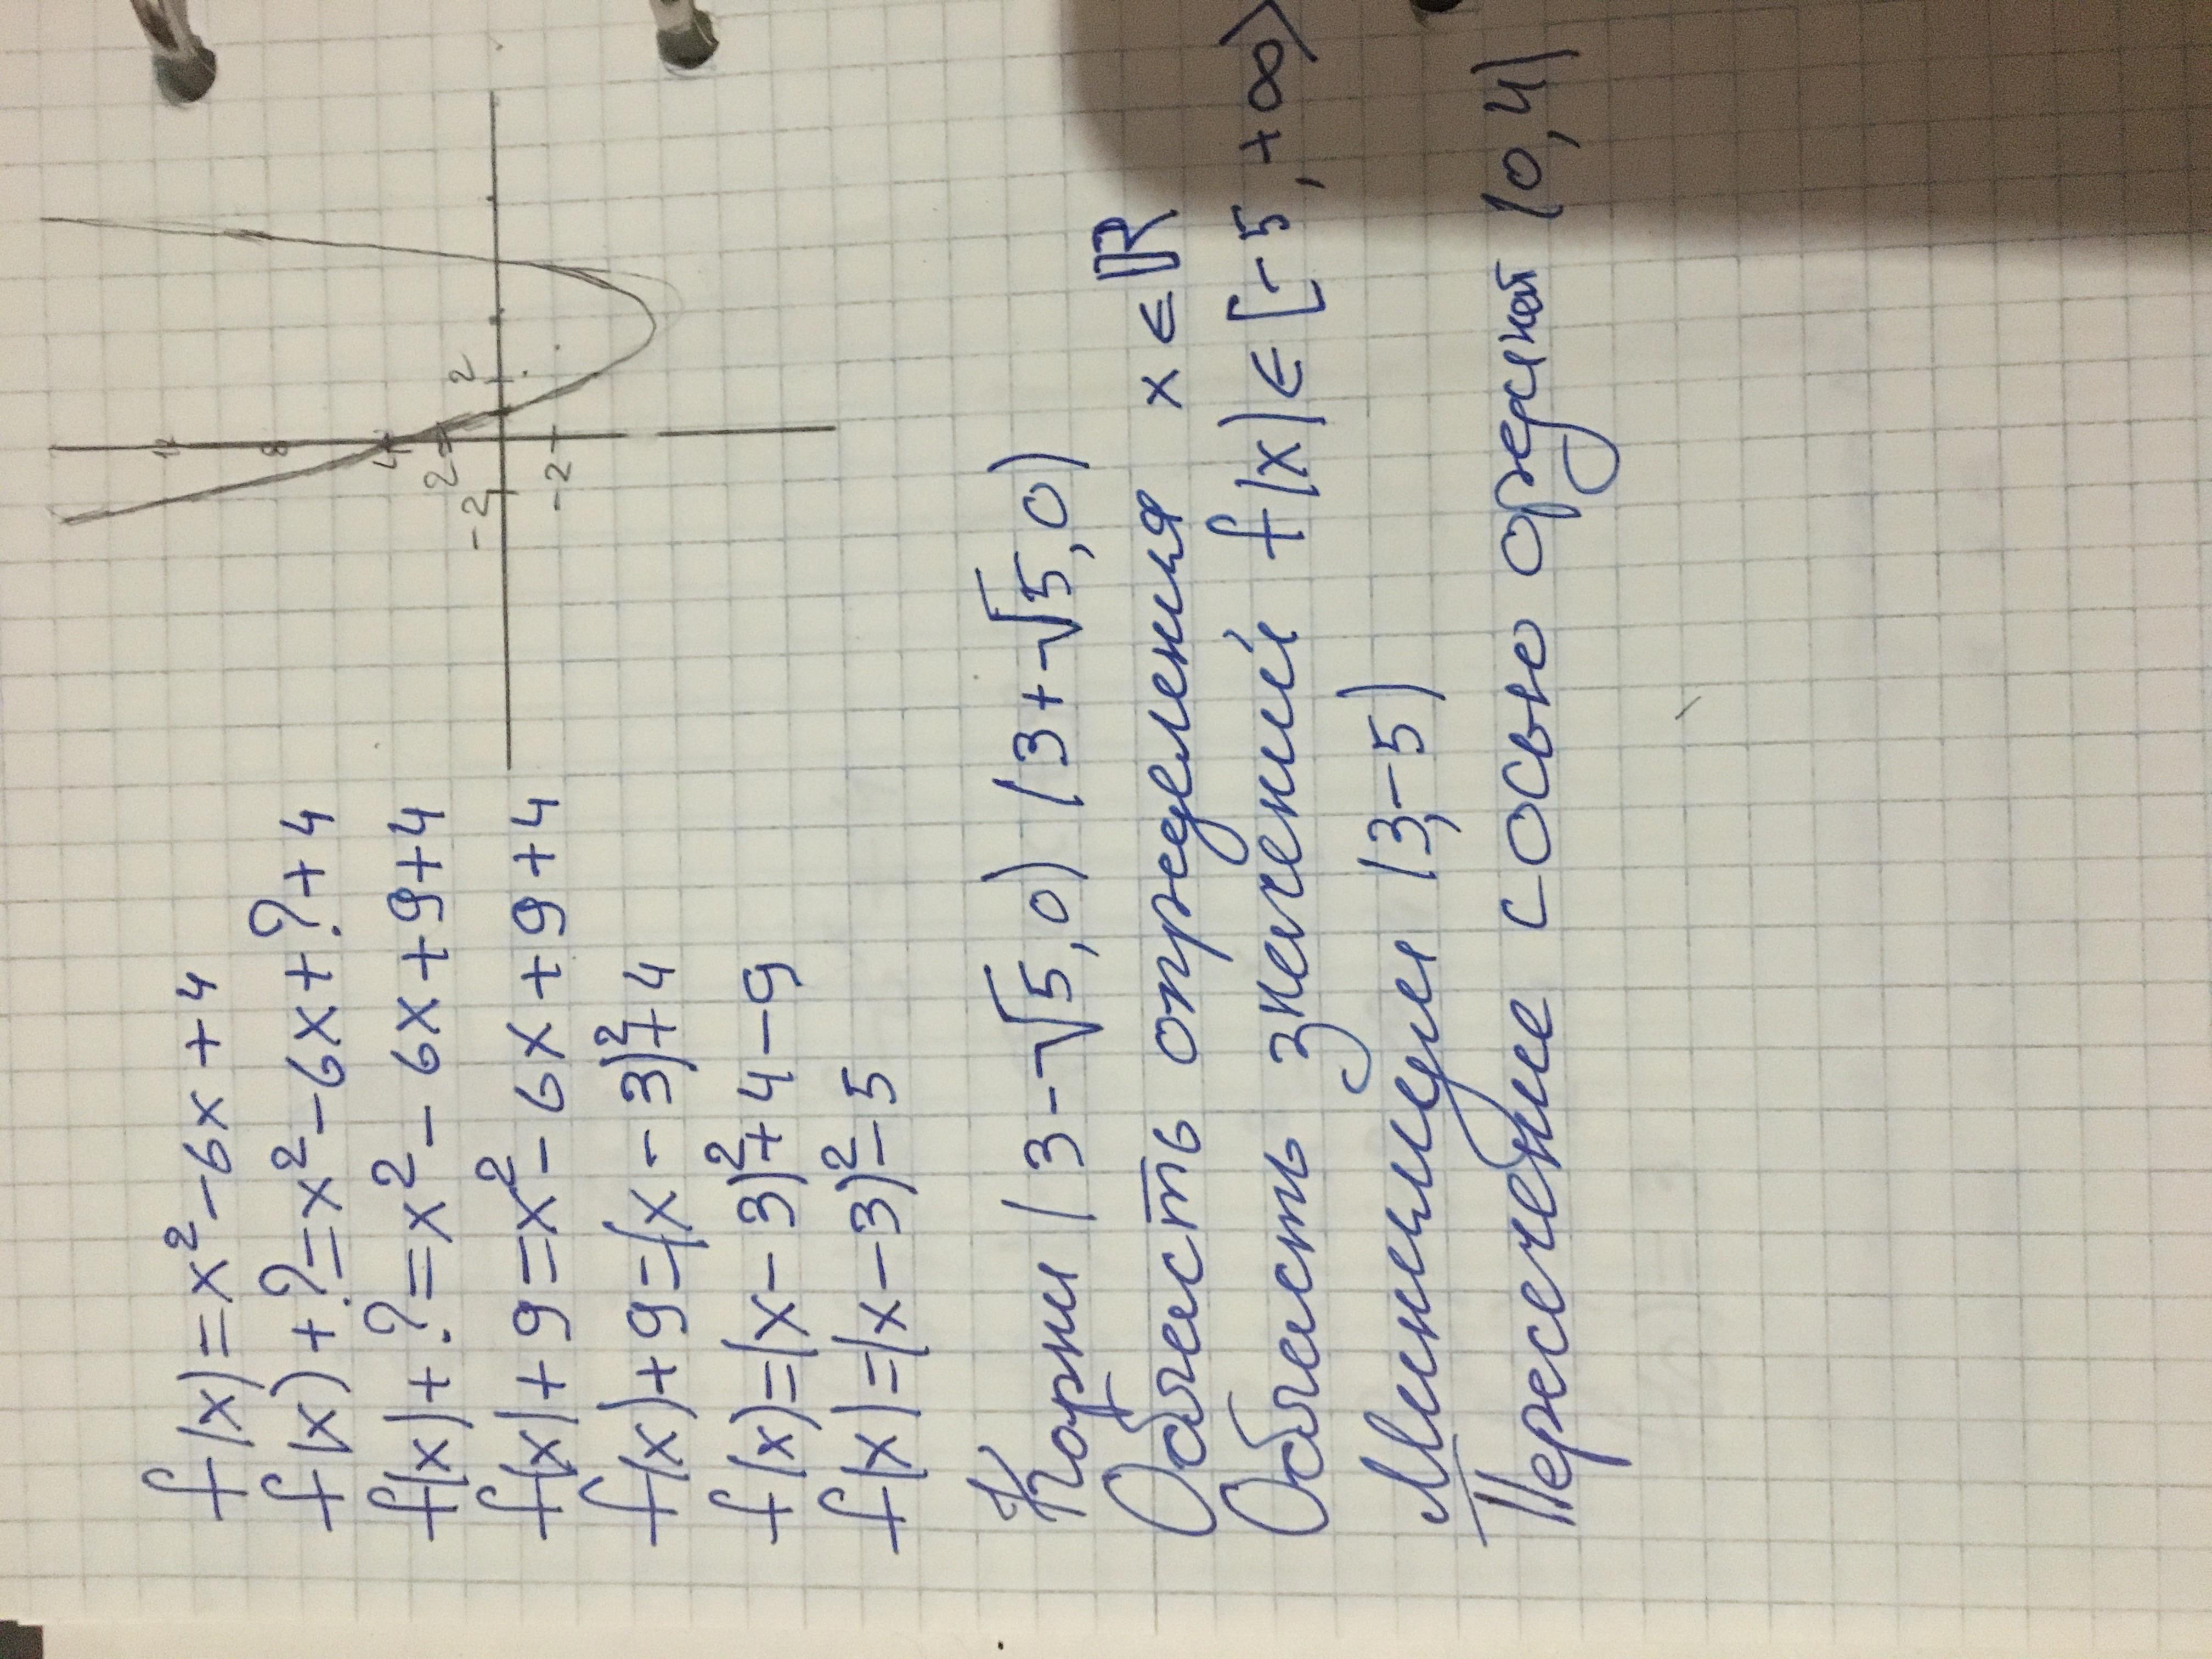 f(x)=x²-6x+4
f(x)+?=x²-6x+?+4
f(x)+?=x²-6x+9+4
f(x)+9=x²-6x+9+4
f(x)+9=(x-3)²+4
f(x)=(x-3)²+4-9
f(x)=(x-3)²-5
12
8
4
2
2
-2
-2
Корни (3-√5,0) (3+√5,0)
Область определения x∈ℝ
Область значений f(x)∈[-5,+∞)
Минимум (3,-5)
Пересечение с осью ординат (0,4)